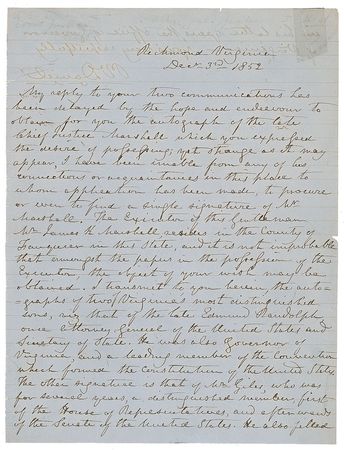 Richmond Virginia
Decr 3rd 1852
My reply to your two communications has
been delayed by the hope and endeavour to
obtain for you the autograph of the late
Chief Justice Marshall which you expressed
the desire of possessing; yet strange as it may
appear, I have been unable from any of his
connections or acquaintances in this place to
whom application has been made, to procure
or even to find a single signature of Mr
Marshall. The Executor of this Gentleman
Mr James K Marshall resides in the County of
Fauquier in this State, and it is not improbable
that amongst the papers in the possession of the
Executor, the object of your wish may be
obtained. I transmit to you herein, the auto-
graphs of two of Virginia's most distinguished
sons, viz that of the late Edmund Randolph
once Attorney General of the United States and
Secretary of State. He was also Governor of
Virginia, and a leading member of the Convention
which formed the Constitution of the United States
The other signature is that of Mr Giles, who was
for several years, a distinguished member, first
of the House of Representatives, and afterwards
of the Senate of the United States. He also filled